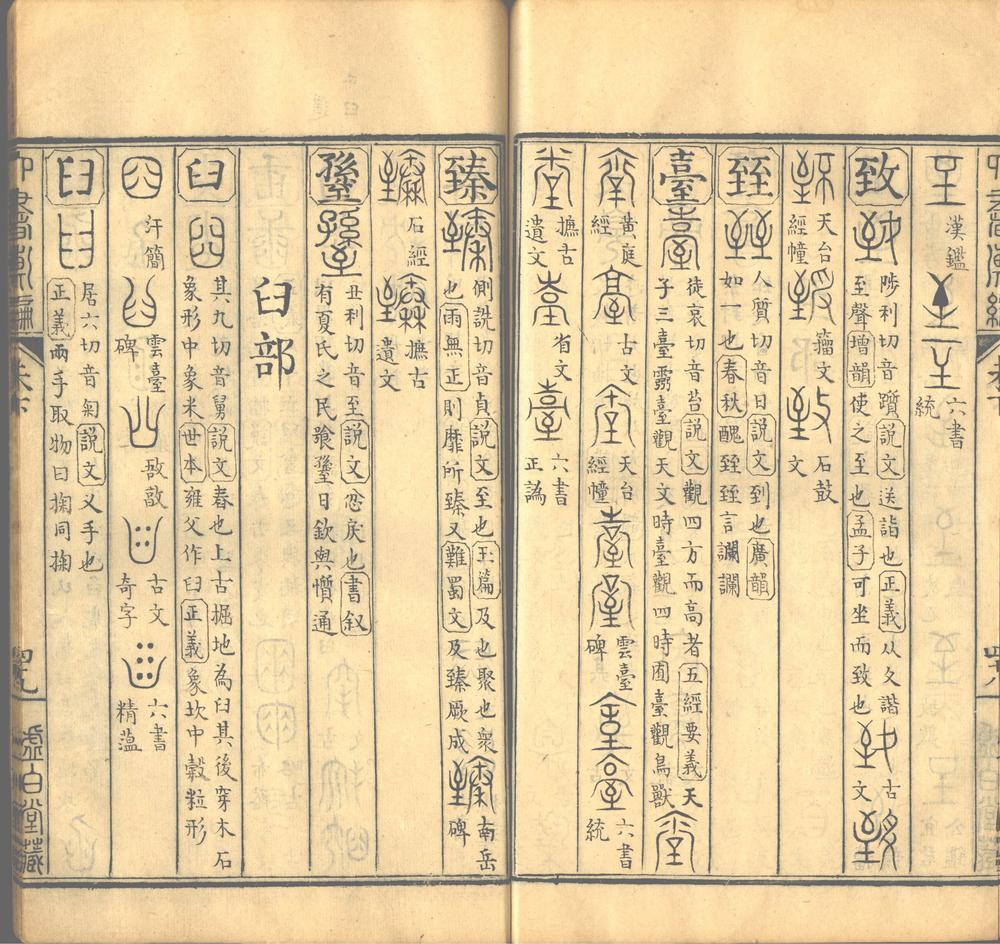 漢鑑 六書統
致 陟利切音躓說文送詣也正義从夂諧
至聲增韻使之至也孟子可坐而致也 古文
天台經幢 籀文 石鼓文
臸 人質切音日說文到也廣韻
如一也春秋醜臸臸言讕讕
臺 徒哀切音苔說文觀四方而高者五經要義天
子三臺靈臺觀天文時臺觀四時囿臺觀鳥獸
黃庭經 古文 天台經幢 雲臺碑 六書統
摭古遺文 省文 六書正譌
臻 側詵切音貞說文至也玉篇及也聚也衆
也雨無正則靡所臻又難蜀文及臻厥成 南岳碑
石經 摭古遺文
丑利切音至說文忿戾也書叙
有夏氏之民飻日欽與懫通
臼部
臼 其九切音舅說文舂也上古掘地為臼其後穿木石
象形中象米世本雍父作臼正義象坎中穀粒形
汗簡 雲臺碑 敔敦 古文奇字 六書精薀
𦥑 居六切音匊說文叉手也
正義兩手取物曰掬同掬
四九 虛白堂藏